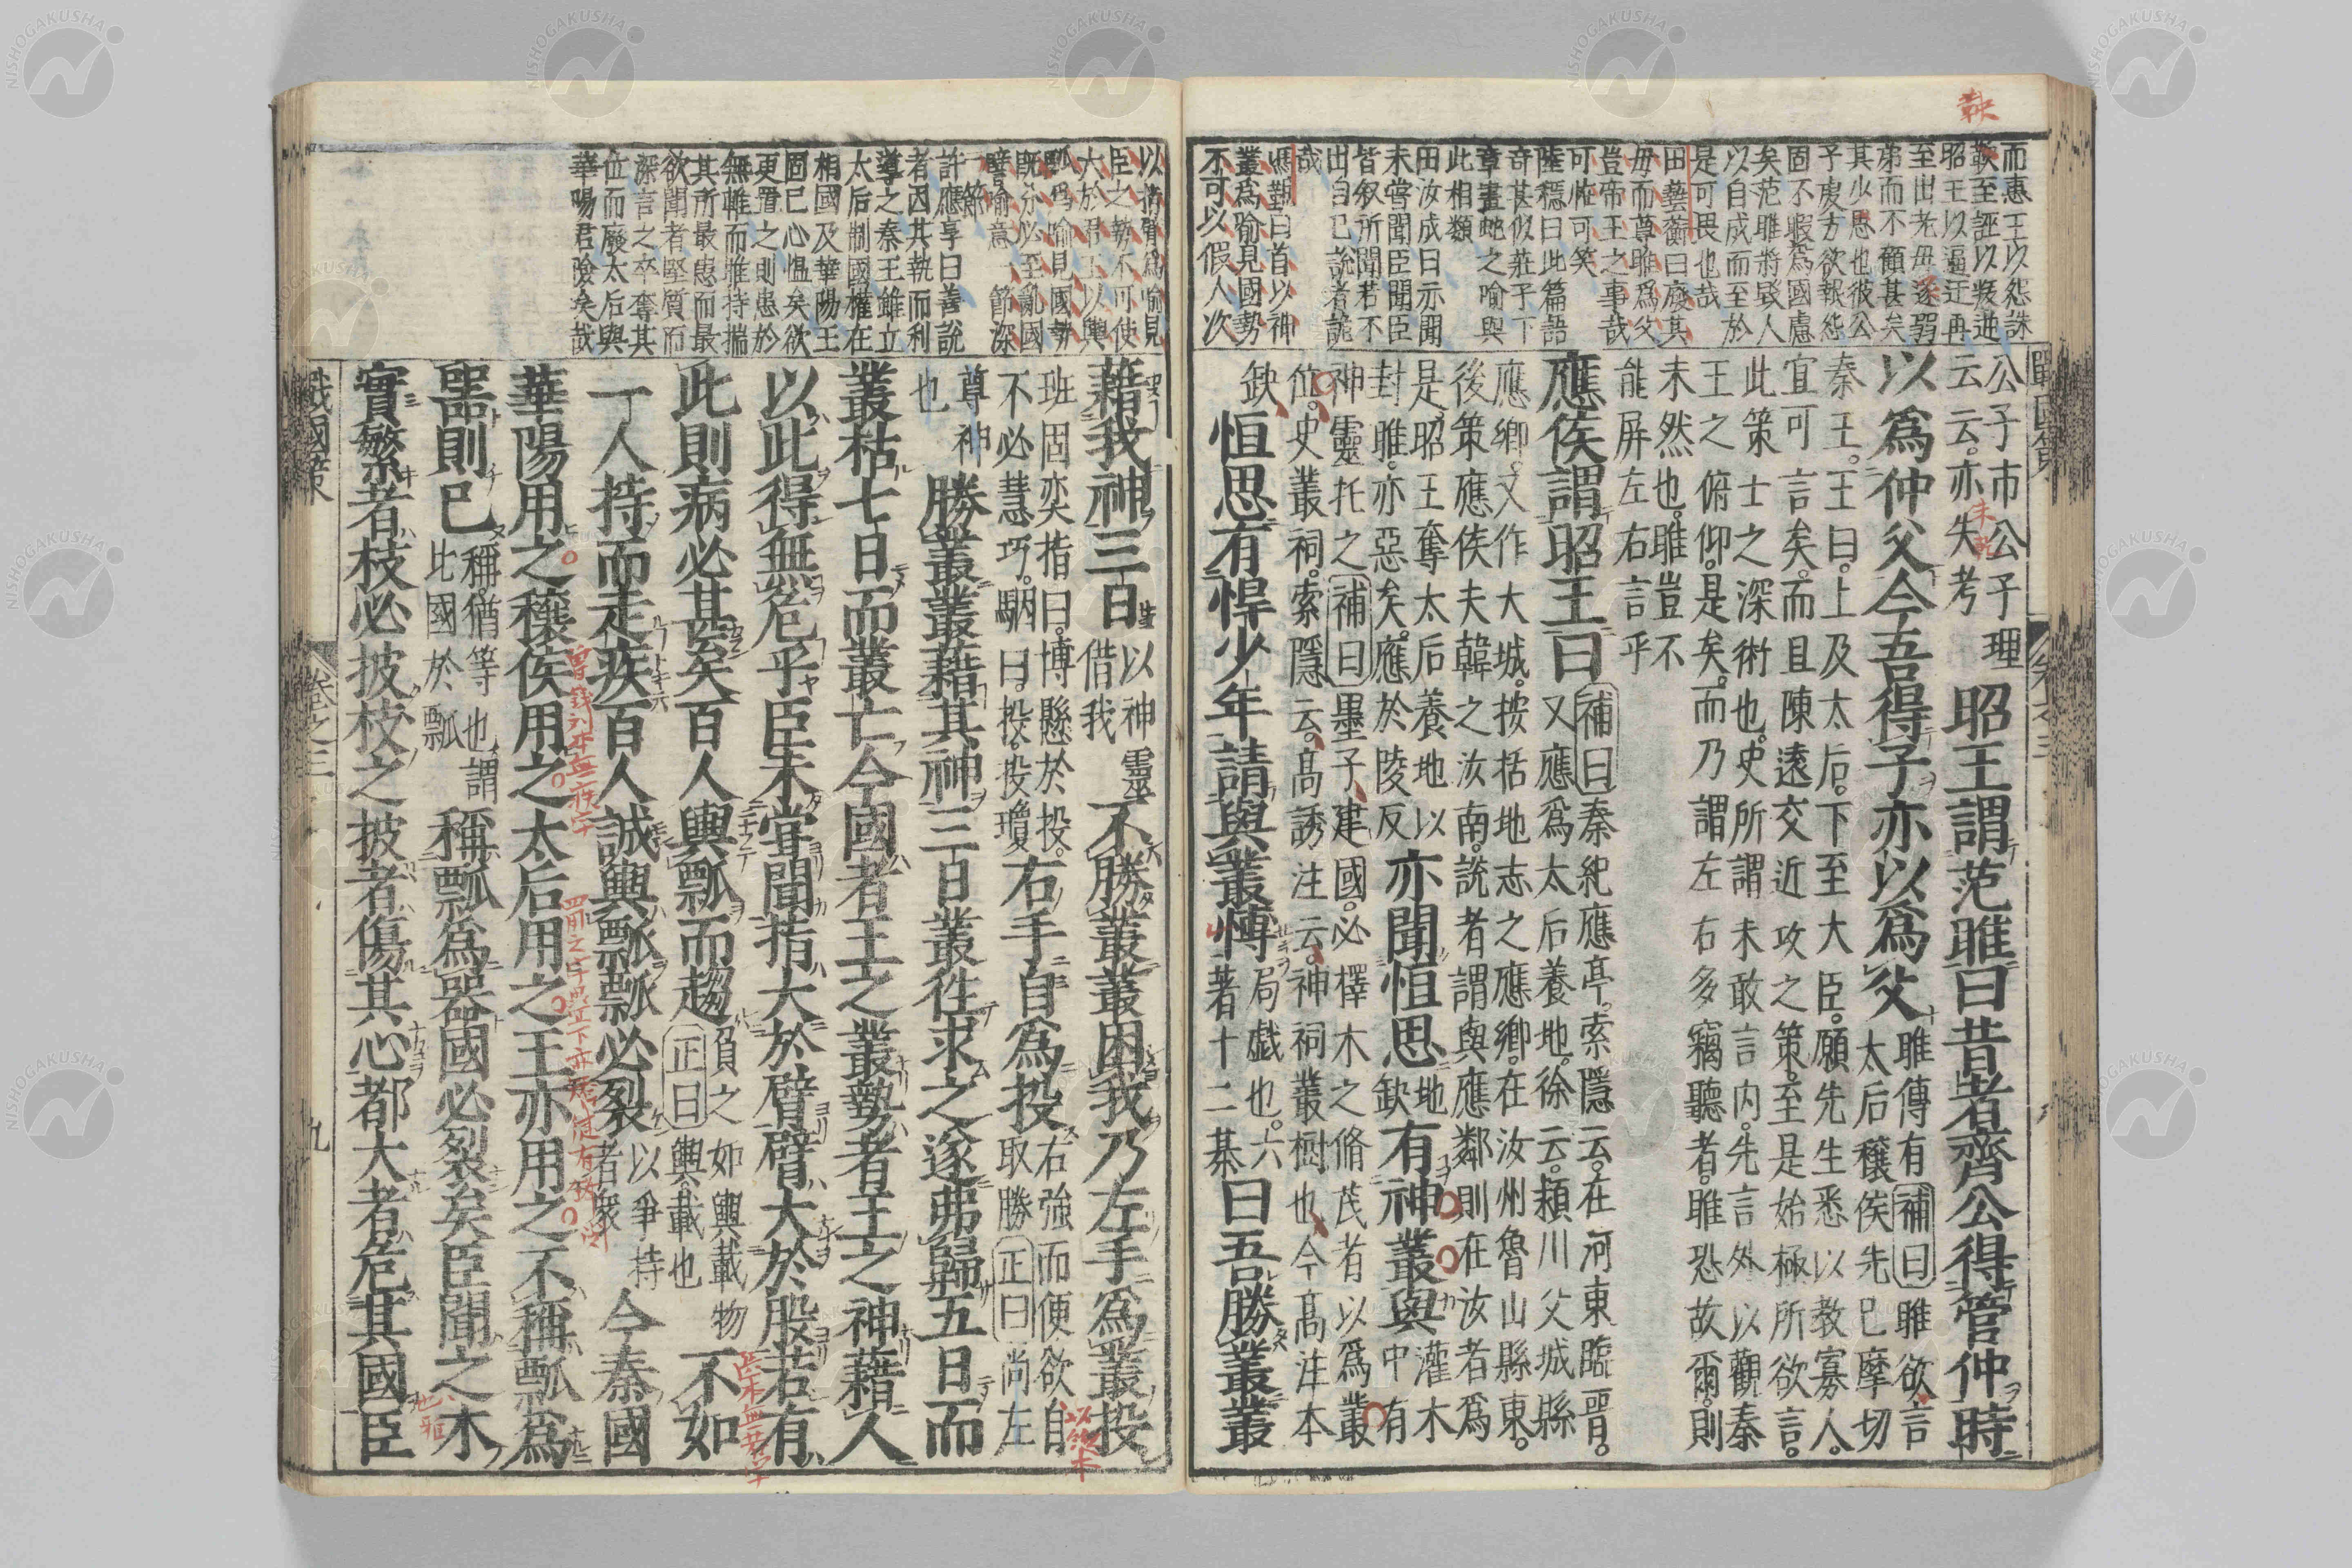 戰國策
卷之三
鞅
而惠王以怨誅
鞅至誣以叛迪
昭王以逼迂再
至出老母逐弱
弟而不顧甚矣
其少恩也彼公
子虔方欲報怨
固不暇為國慮
矣范雎將毀人
以自成而至於
是可畏也哉
田藝蘅曰廢其
母而尊雎為父
豈帝王之事哉
可恠可笑
陸穩曰此篇語
奇甚似莊子下
章畫虵之喻與
此相類
田汝成曰亦聞
未嘗聞臣聞臣
皆叙所聞若不
出自己說者詭
哉
馮覲曰首以神
叢為喻見國勢
不可以假人次
公子市公子理
云云。亦失考
昭王謂范雎曰昔者齊公得管仲時
以為仲父今吾得子亦以為父
雎傳有補曰雎欲言
太后穰侯先已摩切
秦王。王曰。上及太后。下至大臣。願先生悉以教寡人。
宜可言矣。而且陳遠交近攻之策。至是始極所欲言。
此策士之深術也。史所謂未敢言内。先言外。以觀秦
王之俯仰。是矣。而乃謂左右多竊聽者。雎恐故爾。則
未然也。雎豈不
能屏左右言乎
應侯謂昭王曰
補曰秦紀應亭。索隱云。在河東臨晉。
又應為太后養地。徐云。潁川父城縣
應鄉。又作大城。按括地志之應鄉。在汝州魯山縣東。
後策應侯失韓之汝南。說者謂與應鄰則在汝者為
是。昭王奪太后養地以
封雎。亦惡矣。應於陵反
亦聞恒思
地
缺
有神叢與
灌木
中有
神靈托之補曰墨子建國。必擇木之脩茂者以為叢
位。史叢祠。索隱云。高誘注云。神祠叢樹也今高注本
缺
恒思有悍少年請與叢慱
局戯也。六
著十二棊
曰吾勝叢叢
以指臂為喻見
臣之勢不可使
大於君三以輿
瓢為喻見國勢
既分必至亂國
譬喻意一節深
一節
許應亨曰善說
者因其執而利
導之秦王雖立
太后制國權在
相國及華陽王
固已心慍矣欲
更置之則患於
無雎而雎持揣
其所最患而最
欲聞者堅質而
深言之卒奪其
位而廢太后與
華陽君險矣哉
藉我神三日
以神靈
借我
不勝叢叢困我乃左手為叢投
班固奕指曰。博懸於投。
不必慧巧。駰曰。投。投瓊
右手自為投
右強而便欲自
取勝正曰尚左
尊神
也
勝叢叢藉其神三日叢徃求之遂弗歸五日而
叢枯七日而叢亡今國者王之叢勢者王之神藉人
以此得無危乎臣未嘗聞指大於臂臂大於股若有
此則病必甚矣百人輿瓢而趨
負之如輿載物
正曰輿載也
不如
一人持而走疾百人誠輿瓢瓢必裂
以爭持
者衆
今秦國
華陽用之穰侯用之太后用之王亦用之不稱瓢為
器則已
稱。猶等也。謂
比國於瓢
稱瓢為器國必裂矣臣聞之木
實繁者枝必披枝之披者傷其心都大者危其國臣
戰國策
卷之三
九